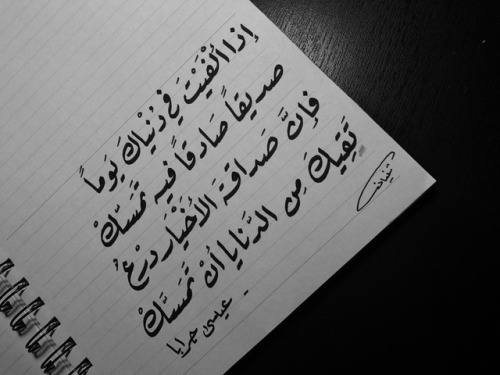 إذا ألْفَيْتَ في دُنْيَاكَ يَوماً
صديقاً صَادقاً فيه تمَسَّكْ
فإنَّ صَداقَة الأخْيَار درْعٌ
تَقِيكَ مِن الدَّنايا أنْ تَمَسَّكْ
- عيسى جرابا